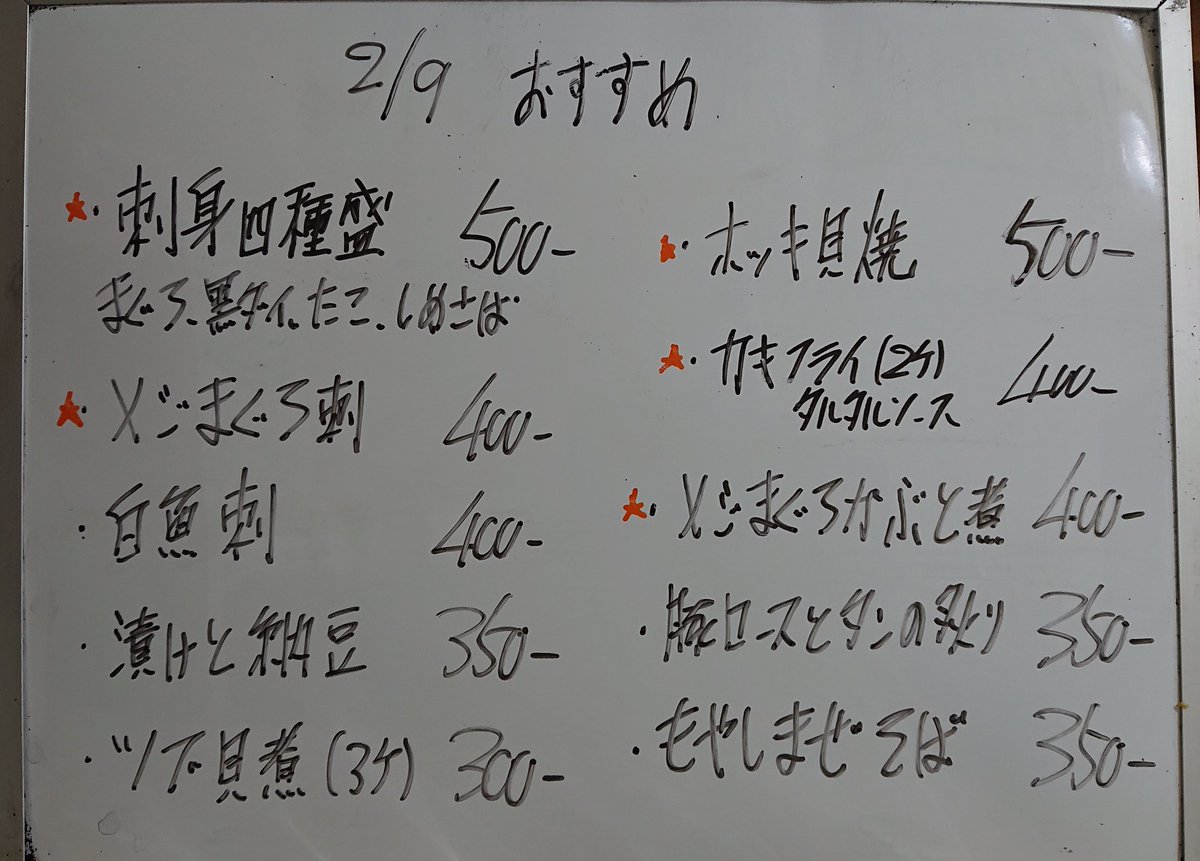 2/9 おすすめ
★・刺身四種盛 500-
まぐろ、黒ダイ、たこ、しめさば
★・メジまぐろ刺 400-
・白魚刺 400-
・漬けと納豆 350-
・ツブ貝煮(3ケ) 300-
★・ホッキ貝焼 500-
★・カキフライ(2ケ) 400-
タルタルソース
★・メジまぐろかぶと煮 400-
・豚ロースとタンの 350-
・もやしまぜそば 350-